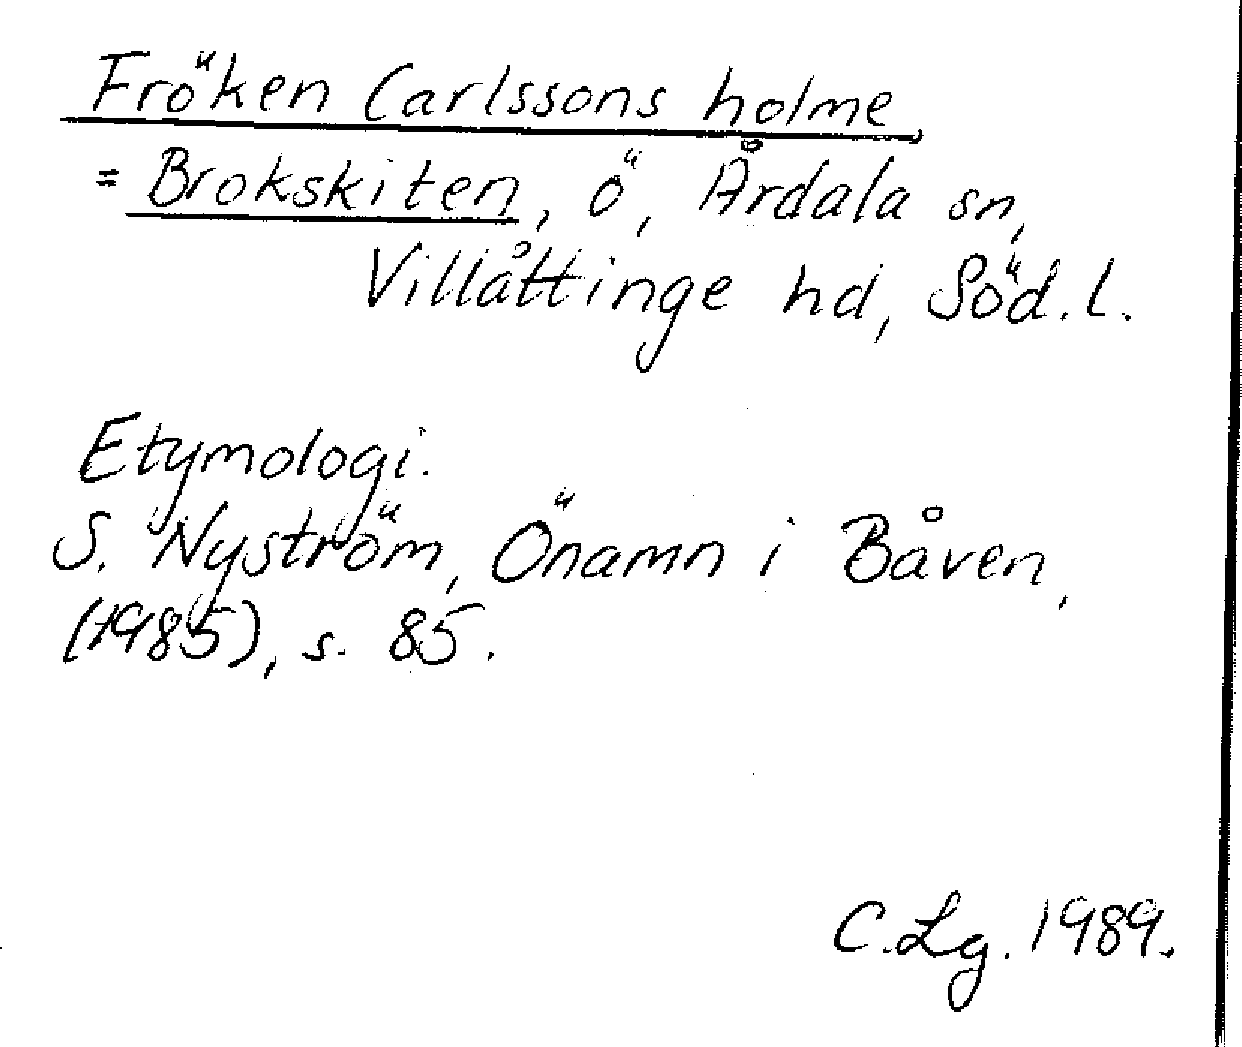 Fröken Carlssons holme,
= Brokskiten, ö, Årdala sn,
Villåttinge hd, Söd.l.
Etymologi.
S. Nyström, Önamn i Båven,
(1985), s. 85.
C.Lg. 1989.